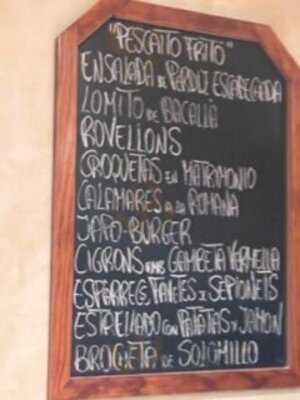 "PESCAITO FRITO"
ENSALADA DE PERDIZ ESCABECHADA
LOMITO DE BACALLÀ
ROVELLONS
CROQUETAS EN MATRIMONIO
CALAMARES A LA ROMANA
JAPO-BURGER
CIGRONS AMB GAMBETA VERMELLA
ESPARREGS, I SEPIONETS
ESTRELLADO CON PATATAS Y JAMON
BROQUETA DE SOLOMILLO